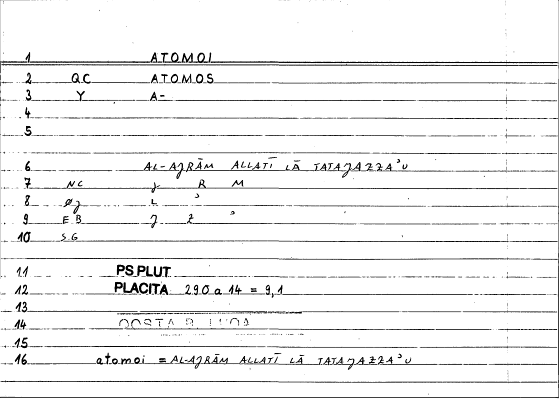 1 ATOMOI
2 QC ATOMOS
3 Y A-
4
5
6 AL-AJRĀM ALLATĪ LĀ TATAJAZZAʾU
7 NC J R M
8 L ʾ
9 EB J Z ʾ
10 SG
11 PS.PLUT
12 PLACITA 290 a 14 = 9,1
13
14
15
16 atomoi = AL-AJRĀM ALLATĪ LĀ TATAJAZZAʾU